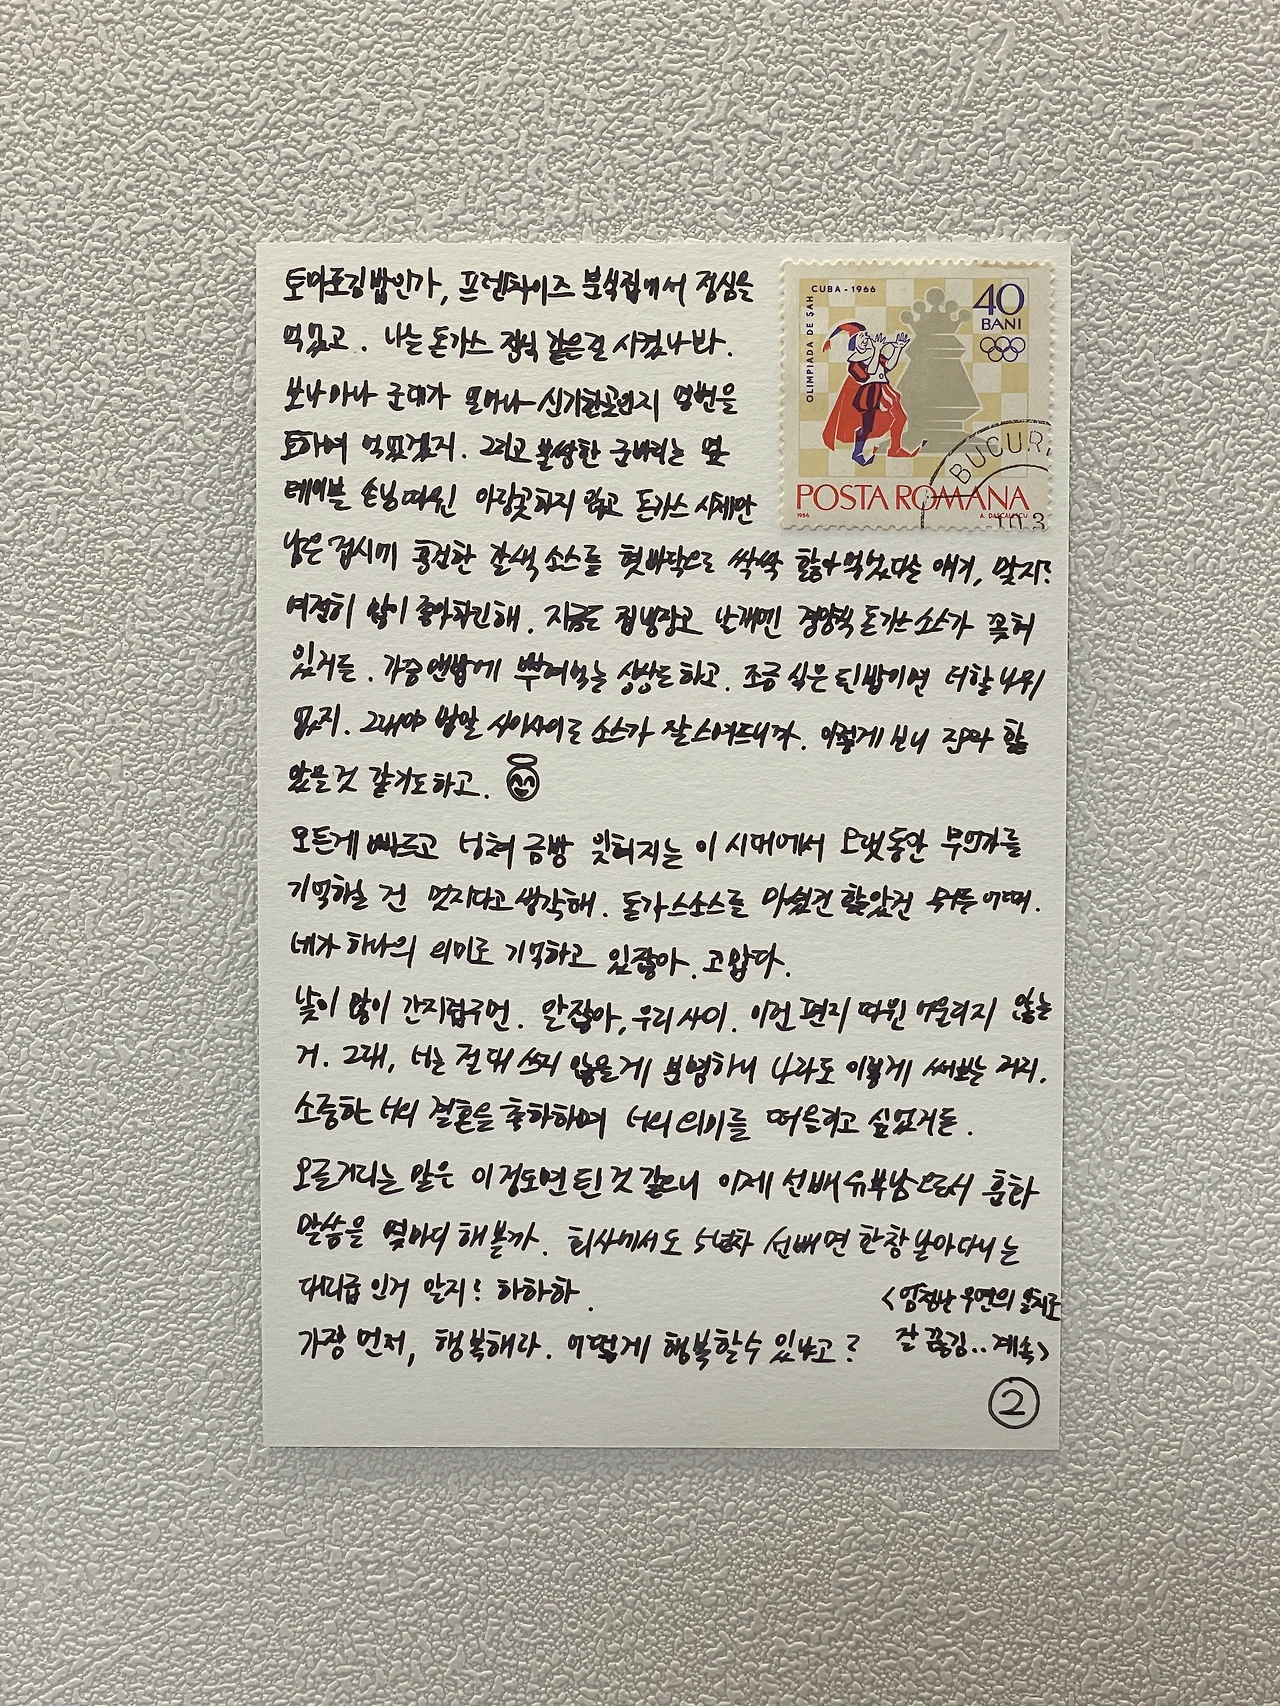 토마토김밥인가, 프렌차이즈 분식집에서 점심을
먹었고. 나는 돈가스 정식 같은걸 시켰나봐.
보나마나 군대가 얼마나 신기한곳인지 열변을
토하며 먹었겠지. 그리고 불쌍한 군바리는 옆
테이블 손님 따윈 아랑곳하지 않고 돈가스 시체만
남은 접시에 흥건한 갈색 소스를 혓바닥으로 싹싹 핥아먹었다는 얘기, 맞지?
여전히 많이 좋아하긴해. 지금도 집 냉장고 날개엔 경양식 돈가스 소스가 꽂혀
있거든. 가끔 맨밥에 뿌려먹는 상상도 하고. 조금 식은 된밥이면 더할 나위
없지. 그래야 밥알 사이사이로 소스가 잘 스며드니까. 이렇게 보니 진짜 핥
았을것 같기도하고.
모든게 빠르고 넘쳐 금방 잊혀지는 이 시대에서 오랫동안 무언가를
기억하는 건 멋지다고 생각해. 돈가스소스를 마셨건 핥았건 뭐든 어때.
네가 하나의 의미로 기억하고 있잖아. 고맙다.
낯이 많이 간지럽구먼. 알잖아, 우리 사이. 이런 편지 따윈 어울리지 않는
거. 그래, 너는 절대 쓰지 않을게 분명하니 나라도 이렇게 써보는 거지.
소중한 너의 결혼을 축하하며 너의 의미를 떠올리고 싶었거든.
오글거리는 말은 이정도면 된 것 같으니 이제 선배 유부남으로서 훈화
말씀을 몇마디 해볼까. 회사에서도 5년차 선배면 한창 날아다니는
대리급 인거 알지? 하하하.
가장 먼저, 행복해라. 어떻게 행복할수 있냐고?
<엄청난 우연의 일치로
잘 끊김.. 계속>
②
CUBA - 1966
OLIMPIADA DE ŞAH
40
BANI
POSTA ROMANA
1966
A. DASCALESCU
BUCUR
10.3